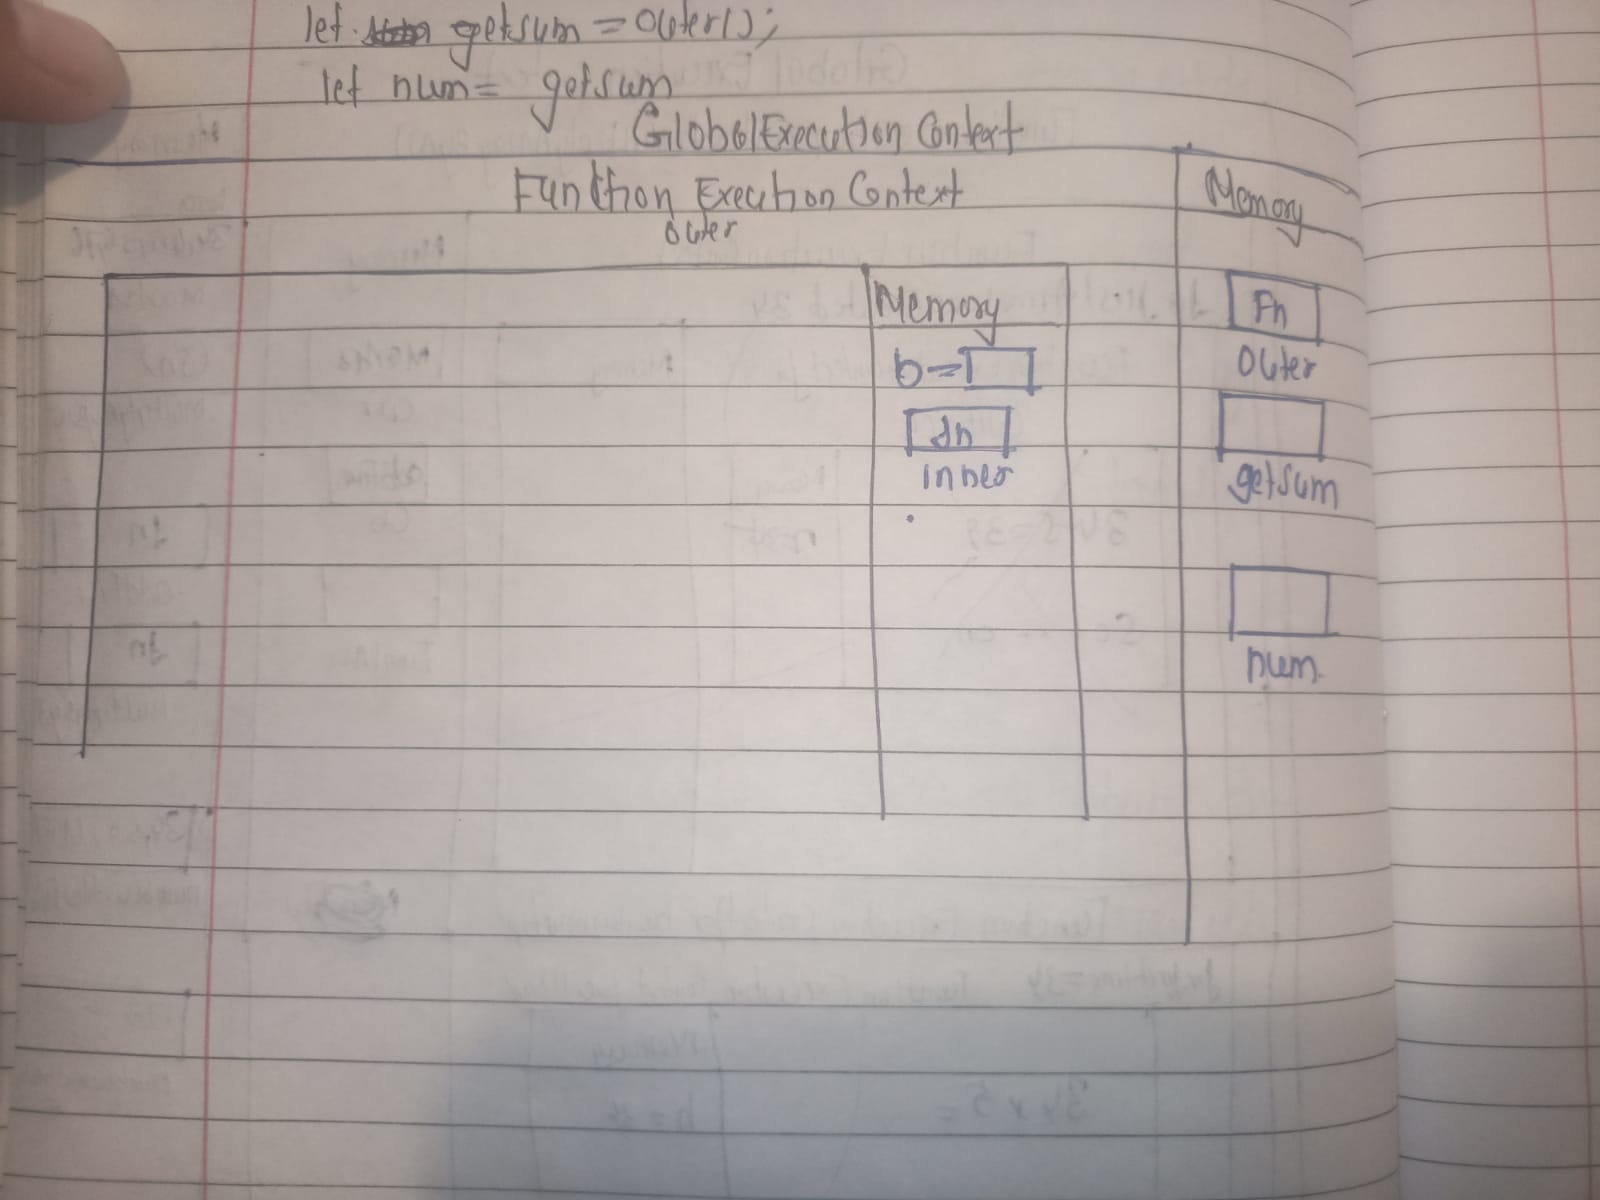 let getsum = Outer();
let num = getsum
Global Execution Context
Function Execution Context
Outer
Memory
Memory
Fn
Outer
b =
fn
inner
getsum
num.